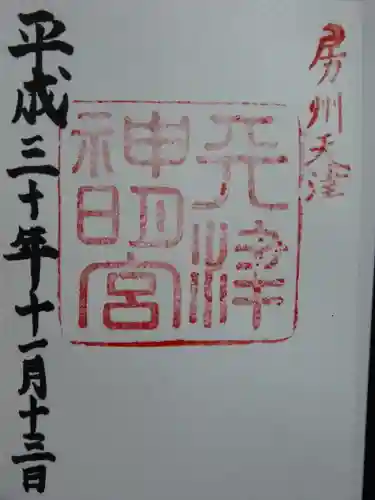 房州天津
天津
神明宮
平成三十年十一月十三日